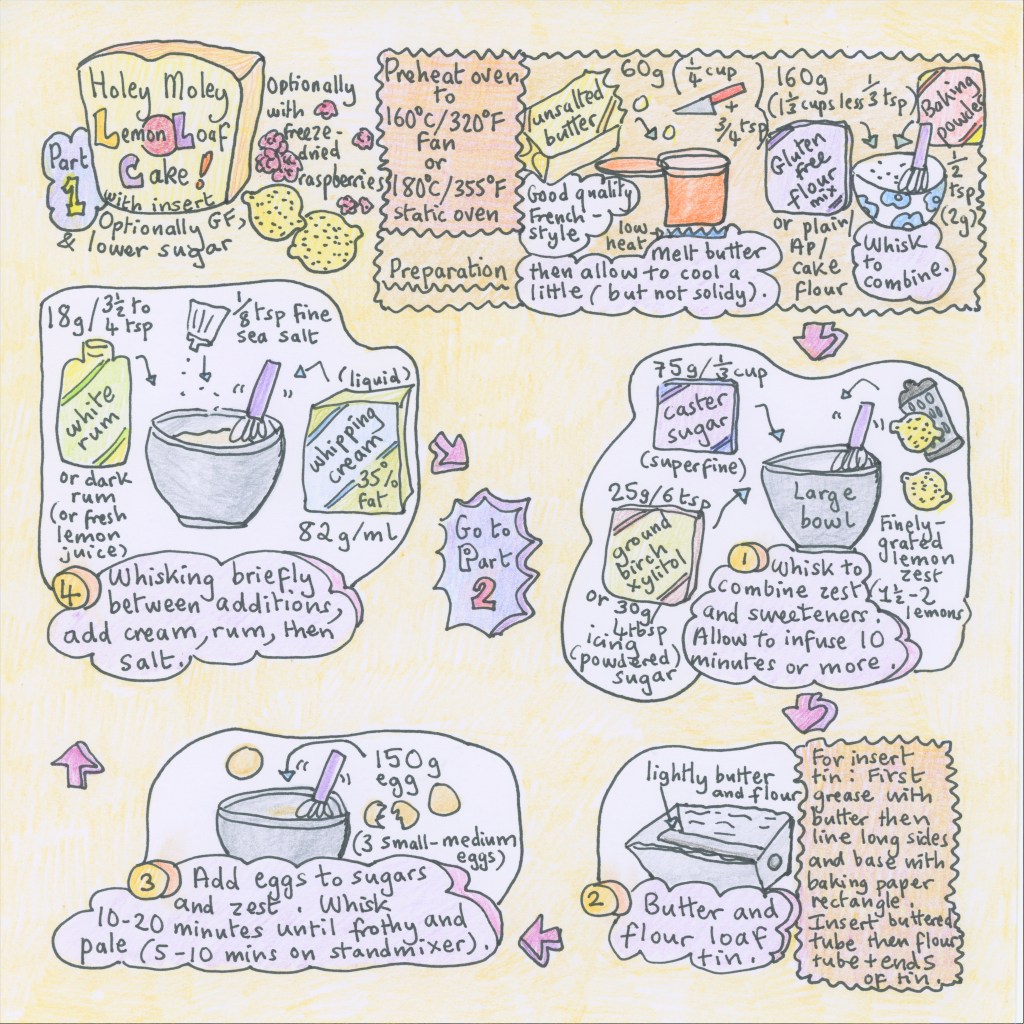 Holey Moley
Lemon Loaf
Cake!
with insert
Part
1
Optionally GF,
& lower sugar
Optionally
with
freeze-
dried
raspberries
Preheat oven
to
160°C/320°F
Fan
or
180°C/355°F
static oven
Preparation
unsalted
butter
60g (1/4 cup
+
3/4 tsp)
Good quality
French-
style
low
heat
melt butter
then allow to cool a
little (but not solidy).
160g
(1 1/3 cups less 1/3 tsp)
Gluten
free
flour
mix
or plain/
AP/
cake
flour
Baking
powder
1/2
tsp
(2g)
Whisk
to
combine.
75g/1/3 cup
caster
sugar
(superfine)
25g/6 tsp
ground
birch
xylitol
or 30g/
4tbsp
icing
(powdered)
sugar
Large
bowl
Finely-
grated
lemon
zest
(1 1/2-2
lemons)
1
Whisk to
combine zest
and sweeteners.
Allow to infuse 10
minutes or more.
lightly butter
and flour
2
Butter and
flour loaf
tin.
For insert
tin: First
grease with
butter then
line long sides
and base with
baking paper
rectangle.
Insert buttered
tube then flour
tube + ends
of tin.
150g
egg
(3 small-medium
eggs)
3
Add eggs to sugars
and zest. Whisk
10-20 minutes until frothy and
pale (5-10 mins on standmixer).
18g/3 1/2 to
4 tsp
white
rum
or dark
rum
(or fresh
lemon
juice)
1/8 tsp fine
sea salt
(liquid)
whipping
cream
35%
fat
82g/ml
4
Whisking briefly
between additions,
add cream, rum, then
salt.
Go to
Part
2